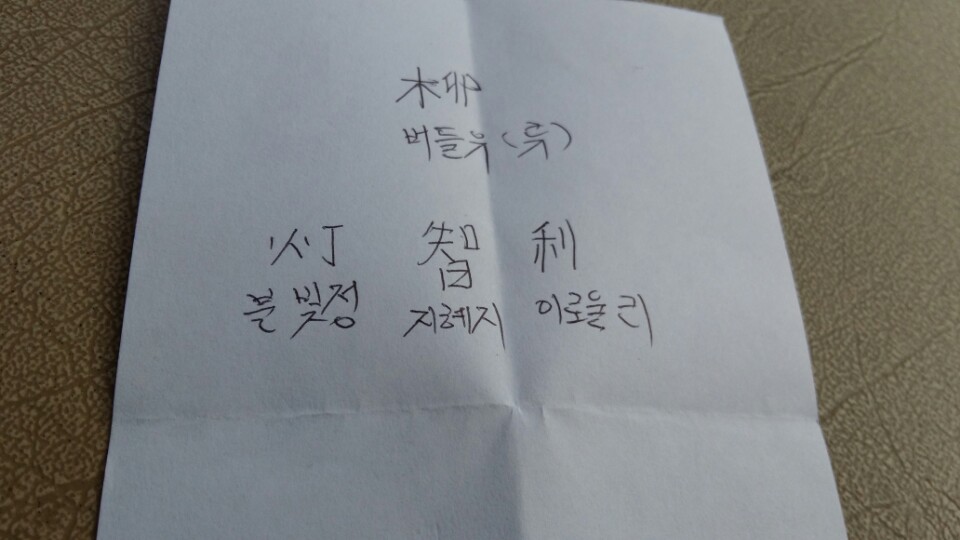 柳
버들유(류)
灯 智 利
불빛정 지혜지 이로울리